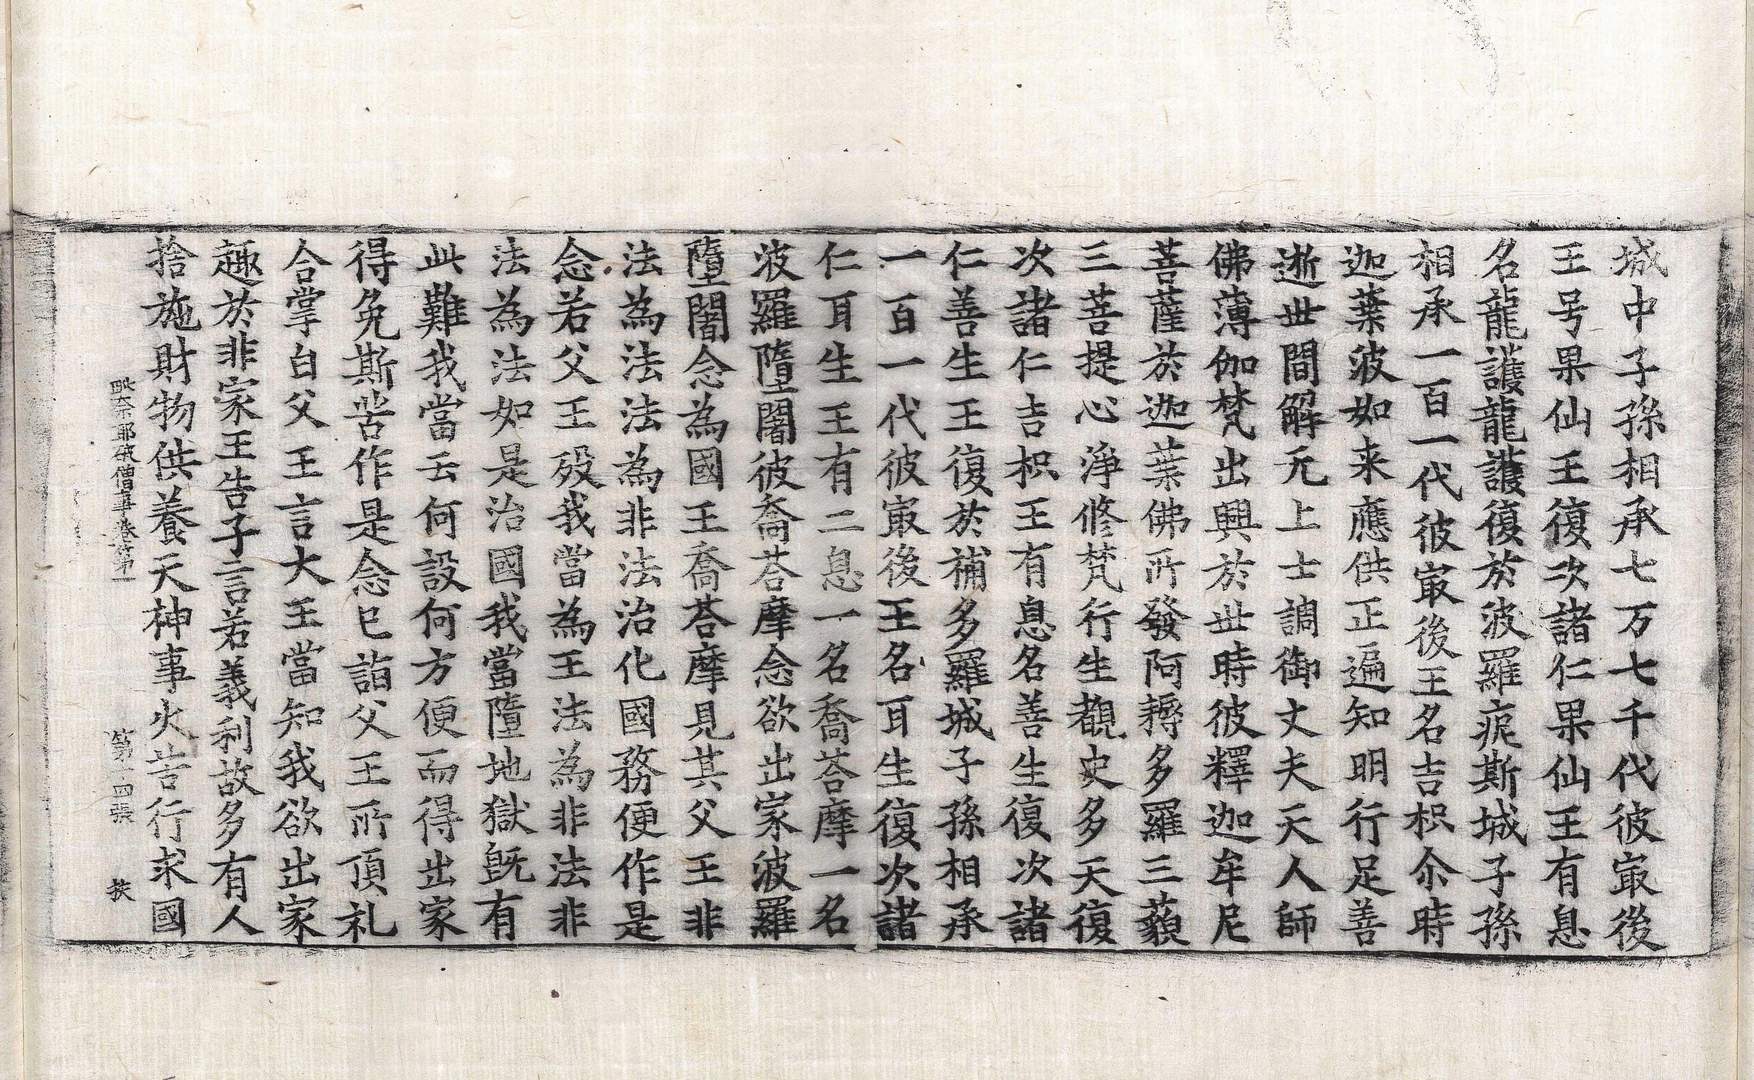 城中子孫相承七万七千代彼㝡後
王号果仙王復次諸仁果仙王有息
名龍護龍護復於波羅痆斯城子孫
相承一百一代彼㝡後王名吉枳尒時
迦葉波如来應供正遍知明行足善
逝世間解无上士調御丈夫天人師
佛薄伽梵出興於世時彼釋迦牟尼
菩薩於迦葉佛所發阿耨多羅三藐
三菩提心淨修梵行生覩史多天復
次諸仁吉枳王有息名善生復次諸
仁善生王復於補多羅城子孫相承
一百一代彼㝡後王名耳生復次諸
仁耳生王有二息一名喬荅摩一名
波羅墮闍彼喬荅摩念欲出家波羅
墮闍念為國王喬荅摩見其父王非
法為法法為非法治化國務便作是
念若父王殁我當為王法為非法非
法為法如是治國我當墮地獄旣有
此難我當云何設何方便而得出家
得免斯苦作是念已詣父王所頂礼
合掌白父王言大王當知我欲出家
趣於非家王告子言若義利故多有人
捨施財物供養天神事火苦行求國
破僧事卷第一 第十四張 扶